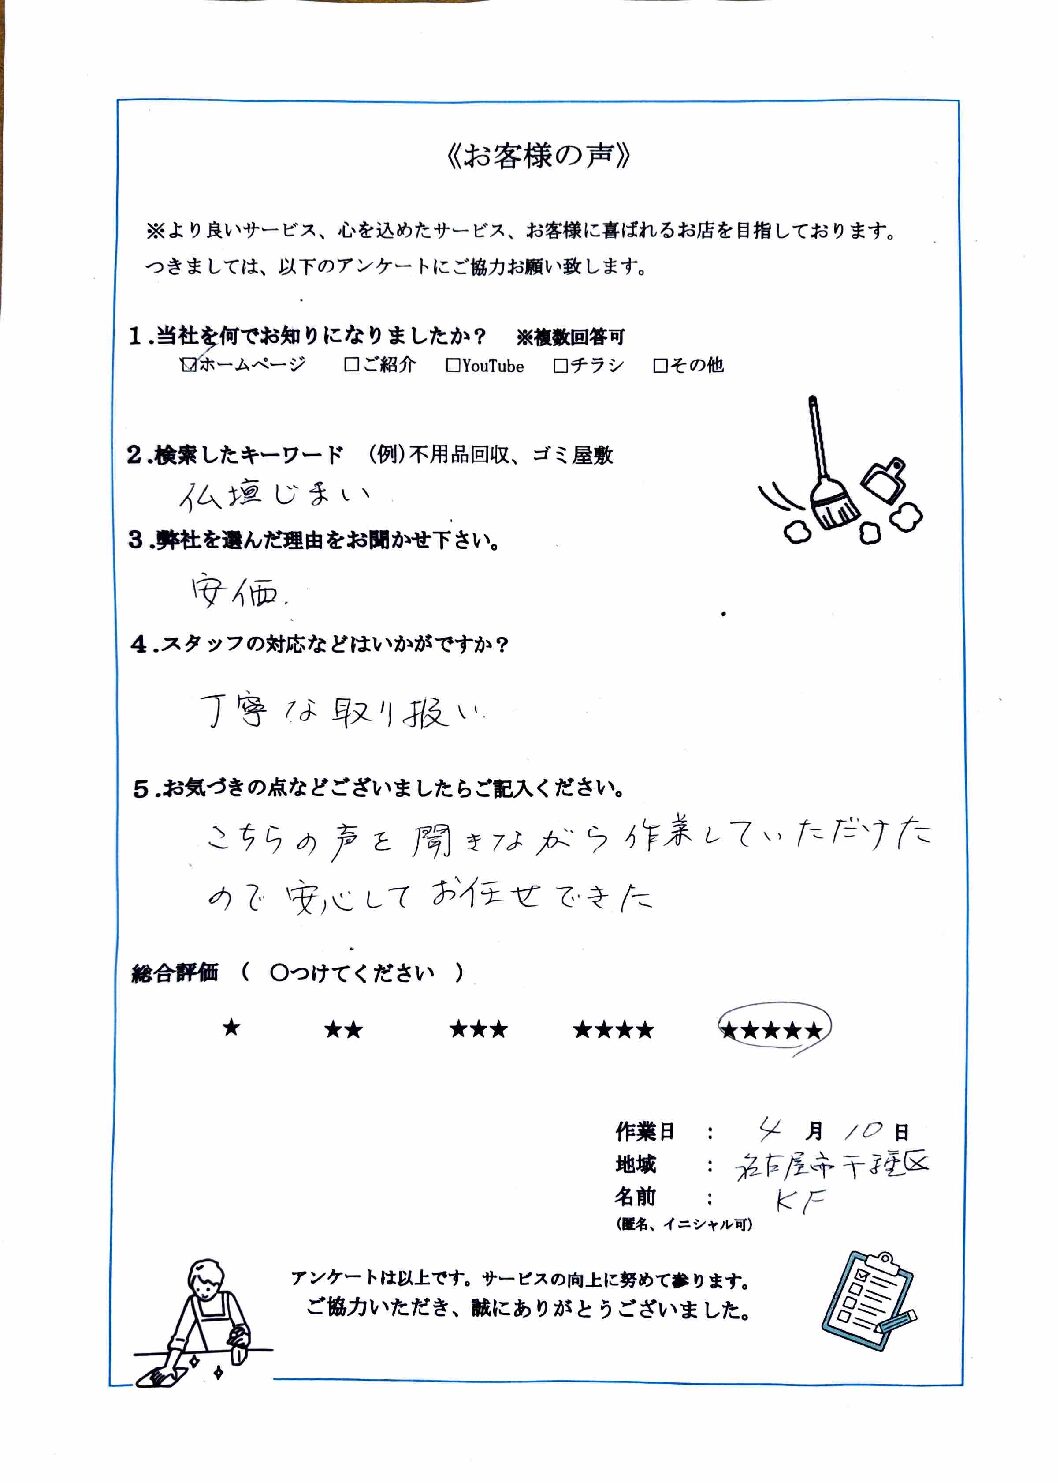 《お客様の声》
※より良いサービス、心を込めたサービス、お客様に喜ばれるお店を目指しております。
つきましては、以下のアンケートにご協力お願い致します。
1.当社を何でお知りになりましたか？　※複数回答可
☑ホームページ　□ご紹介　□YouTube　□チラシ　□その他
2.検索したキーワード　（例）不用品回収、ゴミ屋敷
仏壇じまい
3.弊社を選んだ理由をお聞かせ下さい。
安価.
4.スタッフの対応などはいかがですか？
丁寧な取り扱い
5.お気づきの点などございましたらご記入ください。
こちらの声を聞きながら作業していただけた
ので安心してお任せできた
総合評価　（　〇つけてください　）
★　★★　★★★　★★★★　★★★★★
作業日　：　4月10日
地域　：　名古屋市千種区
名前　：　KF
（匿名、イニシャル可）
アンケートは以上です。サービスの向上に努めて参ります。
ご協力いただき、誠にありがとうございました。